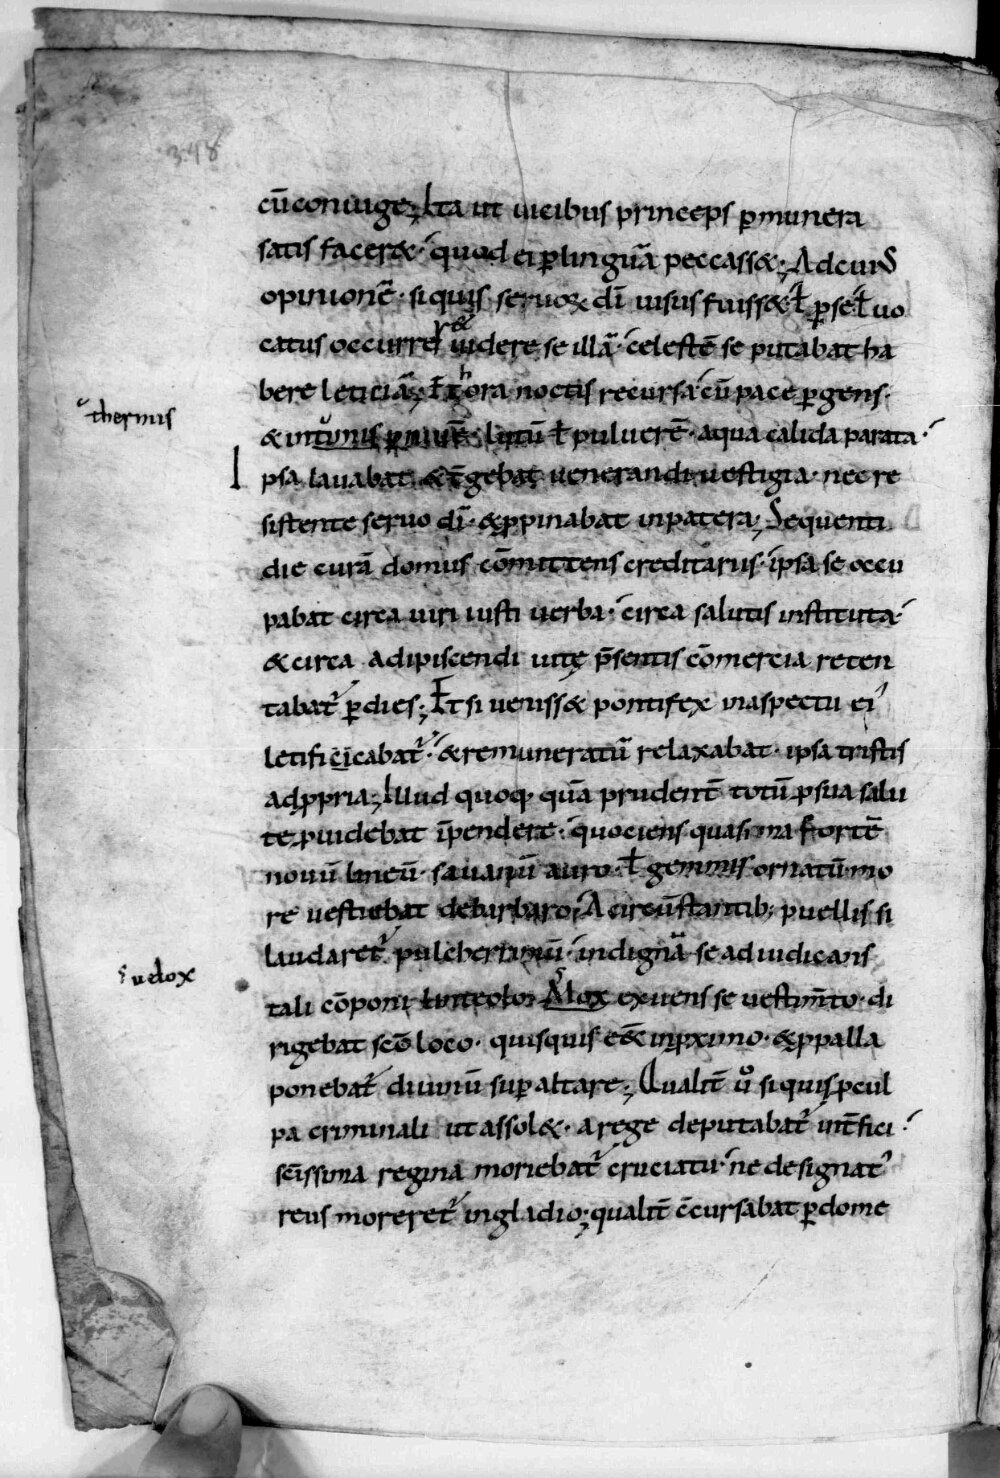 348
cū coniuge; Ita ut uicibus princeps ꝑ munera
satis facer&. quod ei ꝑ linguā peccass&; Ad cuiꝰ
opinionē. si quis seruoꝝ dī uisus fuiss& ł ꝑ se ł uo
catus occurrer& uidere se illā. celestē se putabat ha
bere leticiā; Et hora noctis recursa cū pace ꝑgens.
thermis
& in lutū ł puluerē. aqua calida parata.
Ipsa lauabat & t̄gebat uenerandi uestigia. nec re
sistente seruo dī. & ꝓpinabat in patera; Sequenti
die curā domus cōmittens creditarus. ipsa se occu
pabat circa uiri iusti uerba. circa salutis instituta.
& circa adipiscendi uitę p̄sentis cōmercia reten
tabat᷑ ꝑ dies; Et si ueniss& pontifex in aspectu ei᾽
letificicabat᷑. & remuneratū relaxabat. ipsa tristis
ad ꝓpria; Illud quoq; quā prudent̄ totū ꝓ sua salu
te ꝓuidebat īpendere. quociens quasi ma fortē
nouū lineū. sauanū auro ł gemmis ornatū mo
re uestiebat de barbaro; A circūstantib; puellis si
laudaret᷑ pulcherrimū. indignā se adiudicans
uelox
tali cōponi linteolo; Mox exuens se uestim̄to. di
rigebat sc̄o loco. quisquis e&̄ in ꝓximo. & ꝓ palla
ponebat᷑ diuinū suꝑ altare; Qualit̄ u̾o si quis ꝓ cul
pa criminali ut assol&. a rege deputabat᷑ int̄fici.
sc̄issima regina moriebat᷑ cruciatu. ne designat᾽
reus moreret᷑ in gladio; qualit̄ c̄cursabat ꝑ dome